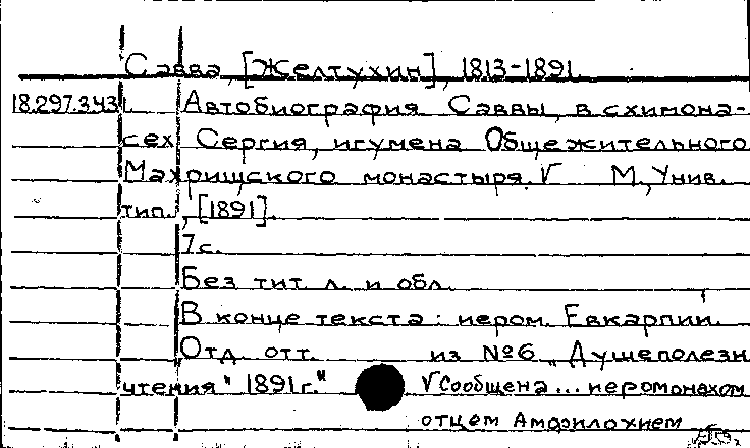 Савва, [Желтухин], 1813-1891.
18.297.343. Автобиография Саввы, в схимона-
сех Сергия, игумена Общежительного
Махрищского монастыря. V М., Унив.
тип., [1891].
7с.
Без тит. л. и обл.
В конце текста: иером. Евкарпий.
Отд. отт. из №6 „Душеполезн
чтения" 1891г."
V Сообщена... иеромонахом
отцем Амфилохием